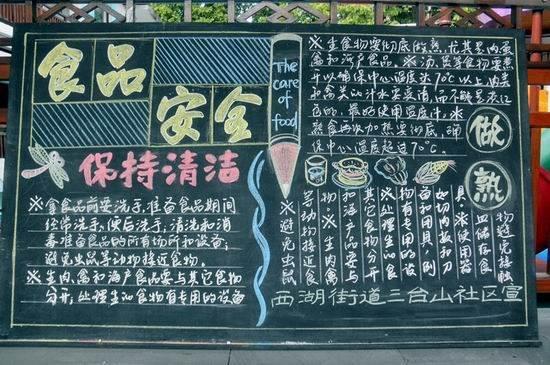 食品
安全
保持清洁
※拿食品前要洗手,准备食品期间
经常洗手,便后洗手,清洗和消
毒准备食品的所有场所和设备;
避免虫鼠等动物接近食物。
※生肉、禽和海产食品要与其它食物
分开;处理生的食物有专用的设备
The
care
of
food
※生食物要彻底的熟,尤其是肉蛋
禽和海产食品。※汤、煲等食物要煮
开以确保中心温度达70℃以上,肉类
和禽类的汁水要变清,而不能是淡红
色的,最好使用温度计,※
熟食再次加热要彻底,确
保中心温度超过70℃。
做
熟
物避免接触
血储存食
具,※使用器
如切肉板和刀
备和用具,例
有专用的设
处理生食物
其它食物分开
和海产品要与
物。※生肉、禽
等动物接近食
※避免虫鼠
西湖街道三台山社区宣